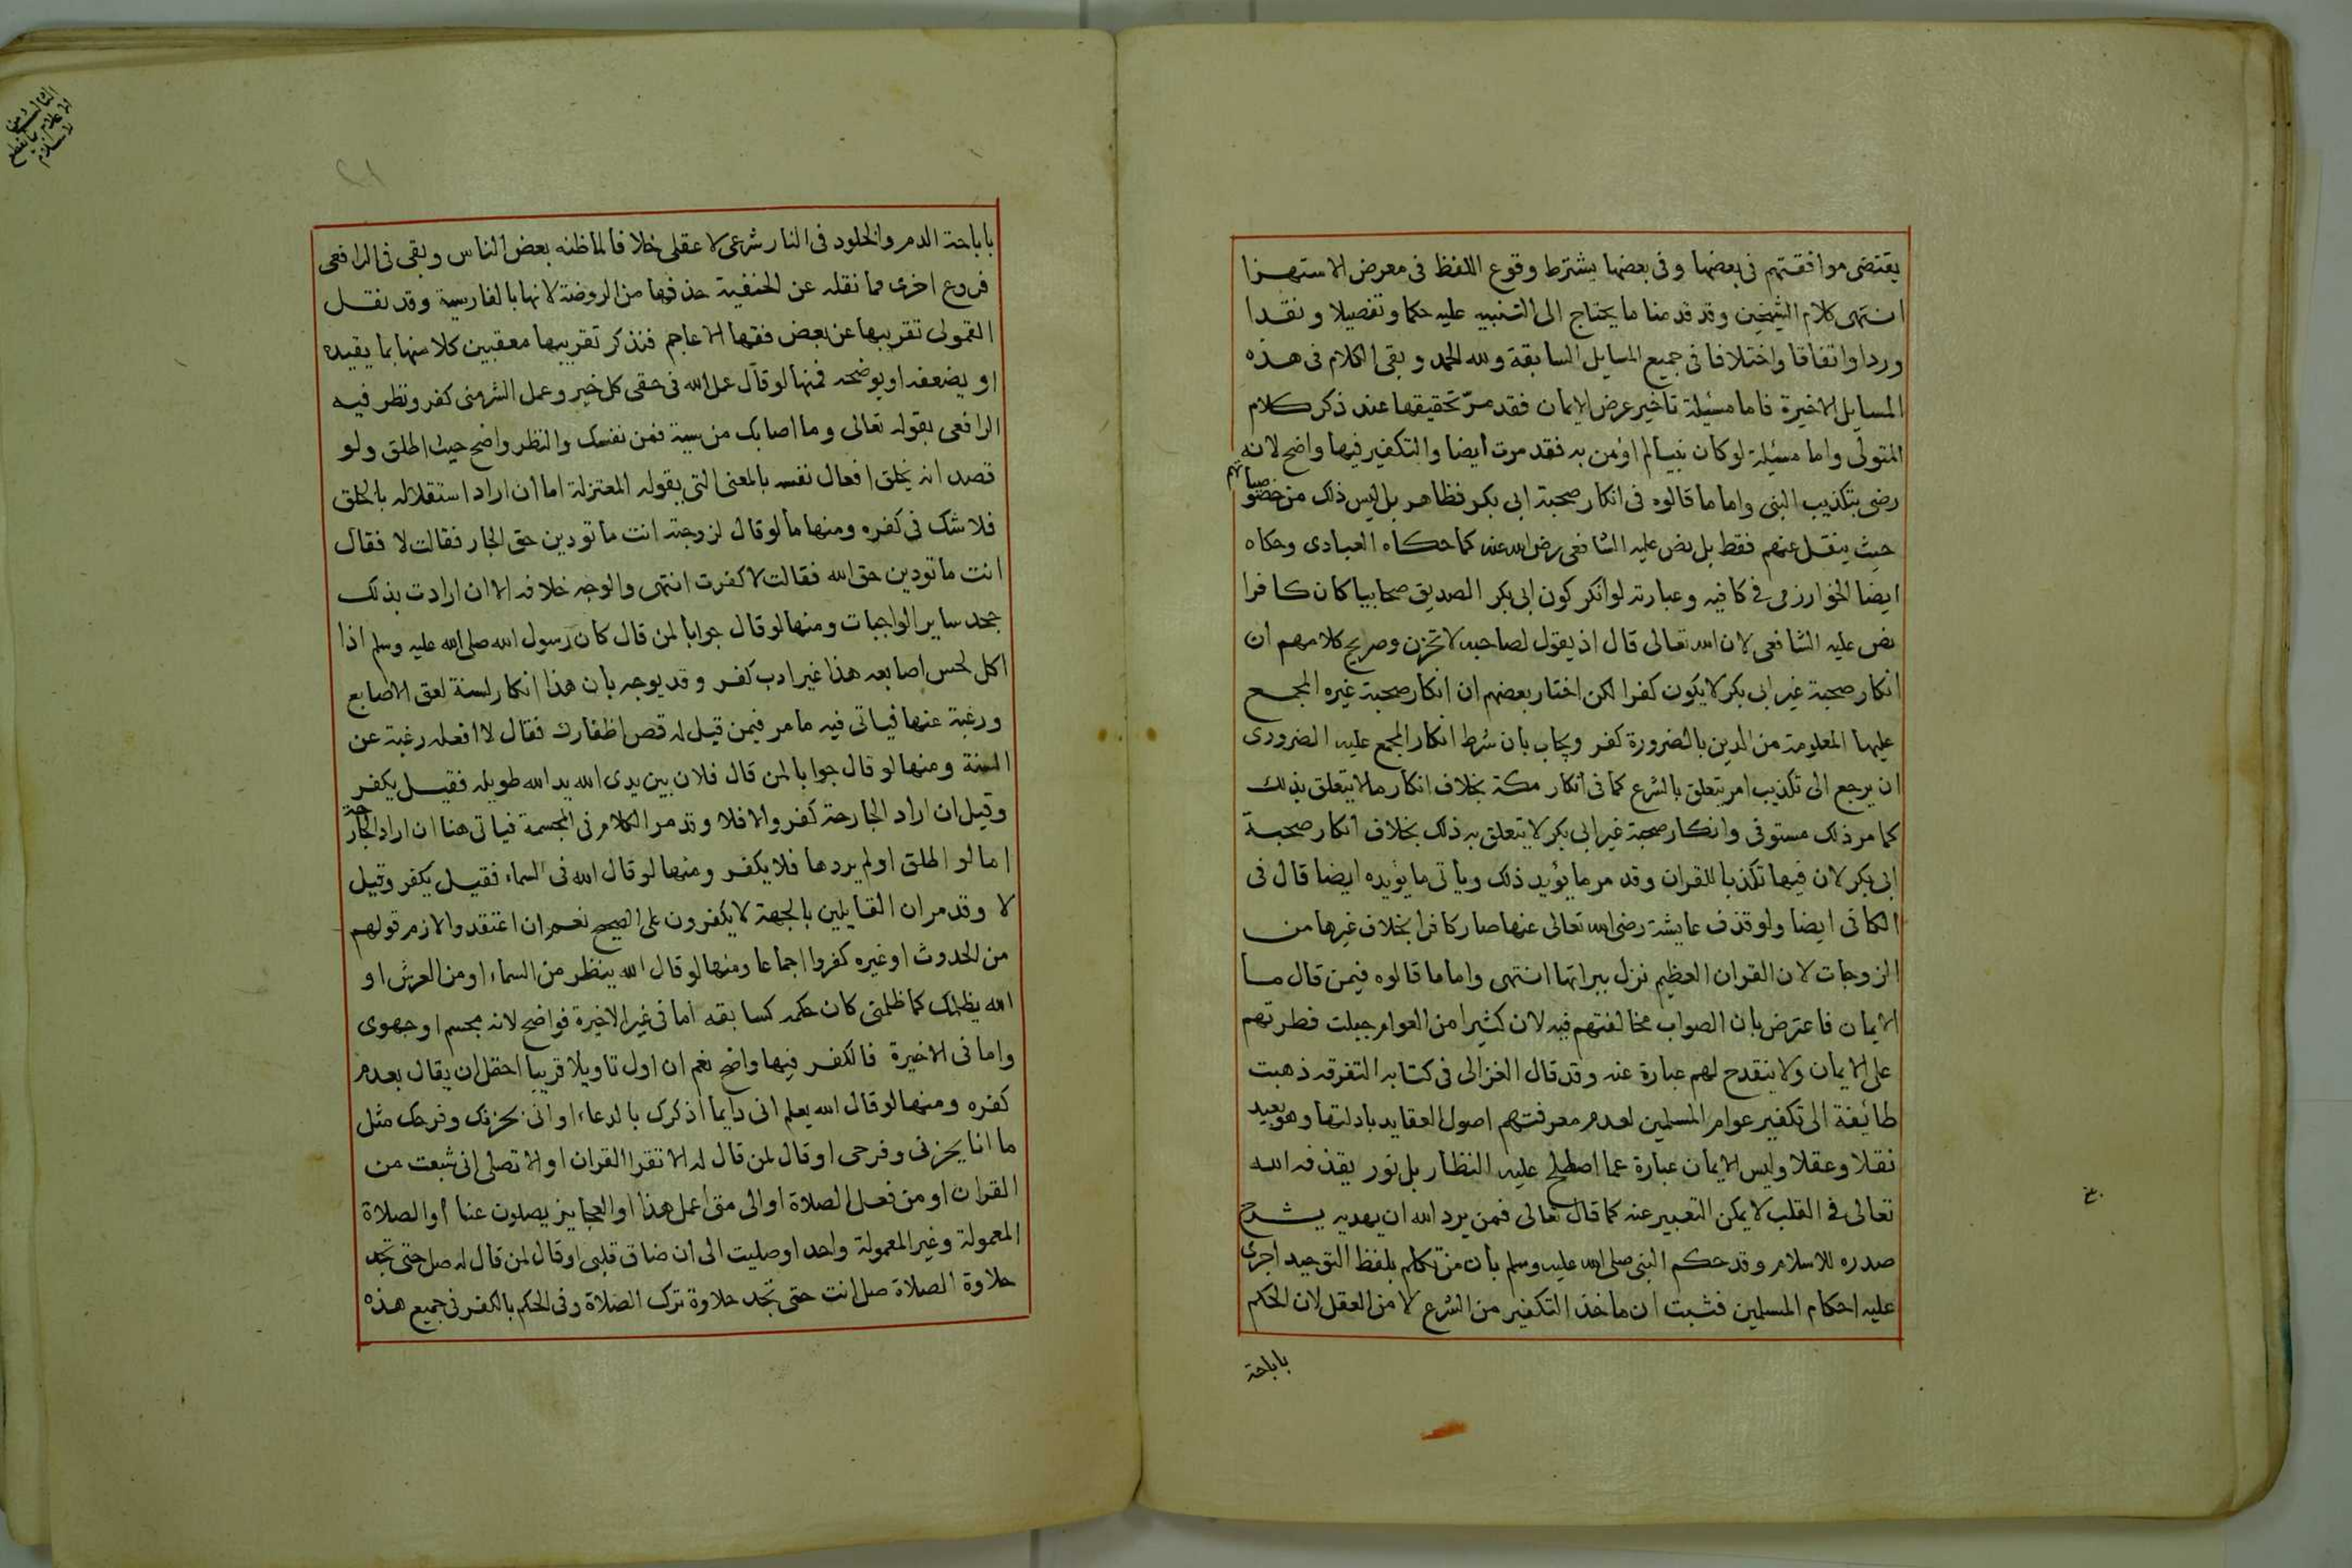 يقتضى موافقتهم فى بعضها وفى بعضها يشترط وقوع اللفظ فى معرض الاستهزا
انتهى كلام الشيخين وقد قدمنا ما يحتاج الى التنبيه عليه حكما وتفصيلا ونقدا
وردا واتفاقا واختلافا فى جميع المسايل السابقة ولله الحمد وبقى الكلام فى هذه
المسايل الاخيرة فاما مسئلة تاخير عرض الايمان فقد مرّ تحقيقها عند ذكر كلام
المتولى واما مسئلة لو كان نبيا لم اؤمن به فقد مرت ايضا والتكفير فيها واضح لانه
رضى بتكذيب النبى واما ما قالوه فى انكار صحبة ابى بكر فظاهر بل ليس ذلك من خصوصياتهم
حيث ينقل عنهم فقط بل نص عليه الشافعى رضى الله عنه كما حكاه العبادى وحكاه
ايضا الخوارزمى فى كافيه وعبارته لو انكر كون ابى بكر الصديق صحابيا كان كافرا
نص عليه الشافعى لان الله تعالى قال اذ يقول لصاحبه لا تحزن وصريح كلامهم ان
انكار صحبة غير ابى بكر لا يكون كفرا لكن اختار بعضهم ان انكار صحبة غيره المجمع
عليها المعلومة من الدين بالضرورة كفر ويجاب بان شرط انكار المجمع عليه الضرورى
ان يرجع الى تكذيب امر يتعلق بالشرع كما فى انكار مكة بخلاف انكار ما لا يتعلق بذلك
كما مر ذلك مستوفى وانكار صحبة غير ابى بكر لا يتعلق به ذلك بخلاف انكار صحبة
ابى بكر لان فيها تكذيبا للقران وقد مر ما يؤيد ذلك ويأتى ما يؤيده ايضا قال فى
الكافى ايضا ولو قذف عايشة رضى الله تعالى عنها صار كافرا بخلاف غيرها من
الزوجات لان القران العظيم نزل ببراتها انتهى واما ما قالوه فيمن قال ما
الايمان فاعترض بان الصواب مخالفتهم فيه لان كثيرا من العوام جبلت فطرتهم
على الايمان ولا ينقدح لهم عبارة عنه وقد قال الغزالى فى كتابه التفرقه ذهبت
طائفة الى تكفير عوام المسلمين لعدم معرفتهم اصول العقايد بادلتها وهو بعيد
نقلا وعقلا وليس الايمان عبارة عما اصطلح عليه النظار بل نور يقذفه الله
تعالى فى القلب لا يمكن التعبير عنه كما قال تعالى فمن يرد الله ان يهديه يشرح
صدره للاسلام وقد حكم النبى صلى الله عليه وسلم بان من تكلم بلفظ التوحيد اجرى
عليه احكام المسلمين فثبت ان ماخذ التكفير من الشرع لا من العقل لان الحكم
باباحة
باباحة الدم والخلود فى النار شرعى لا عقلى خلافا لما ظنه بعض الناس وبقى فى الرافعى
فروع اخرى مما نقله عن الحنفية حذفها من الروضة لانها بالفارسية وقد نقل
القمولى تقريبها عن بعض فقها الاعاجم فنذكر تقريبها معقبين كلا منها بما يقيده
او يضعفه او يوضحه فمنها لو قال عمل الله فى حقى كل خير وعمل الشر منى كفر ونظر فيه
الرافعى بقوله تعالى وما اصابك من سية فمن نفسك والنظر واضح حيث اطلق ولو
قصد انه يخلق افعال نفسه بالمعنى التى بقوله المعتزلة اما ان اراد استقلاله بالخلق
فلا شك فى كفره ومنها ما لو قال لزوجته انت ما تودين حق الجار فقالت لا فقال
انت ما تودين حق الله فقالت لا كفرت انتهى والوجه خلافه الا ان ارادت بذلك
جحد ساير الواجبات ومنها لو قال جوابا لمن قال كان رسول الله صلى الله عليه وسلم اذا
اكل لحس اصابعه هذا غير ادب كفر وقد يوجه بان هذا انكار لسنة لعق الاصابع
ورغبة عنها فياتى فيه ما مر فيمن قيل له قص اظفارك فقال لا افعله رغبة عن
السنة ومنها لو قال جوابا لمن قال فلان بين يدى الله يد الله طويله فقيل يكفر
وقيل ان اراد الجارحة كفر والا فلا وقد مر الكلام فى المجسمة فياتى هنا ان اراد الجارحة
اما لو اطلق او لم يردها فلا يكفر ومنها لو قال الله فى السماء فقيل يكفر وقيل
لا وقد مر ان القايلين بالجهة لا يكفرون على الصحيح نعم ان اعتقدوا لازم قولهم
من الحدوث او غيره كفروا اجماعا ومنها لو قال الله ينظر من السماء او من العرش او
الله يظلمك كما ظلمتى كان حكمه كسابقه اما فى غير الاخيرة فواضح لانه مجسم او جهوى
واما فى الاخيرة فالكفر فيها واضح نعم ان اول تاويلا قريبا احتمل ان يقال بعدم
كفره ومنها لو قال الله يعلم انى دايما اذكرك بالدعاء او انى بحزنك وفرحك مثل
ما انا بحزنى وفرحى او قال لمن قال له الا تقرا القران او الا تصلى انى شبعت من
القران او من فعل الصلاة او الى متى اعمل هذا او العجايز يصلون عنا أو الصلاة
المعمولة وغير المعمولة واحد او صليت الى ان ضاق قلبى او قال لمن قال له صل حتى تجد
حلاوة الصلاة صل انت حتى تجد حلاوة ترك الصلاة وفى الحكم بالكفر فى جميع هذه